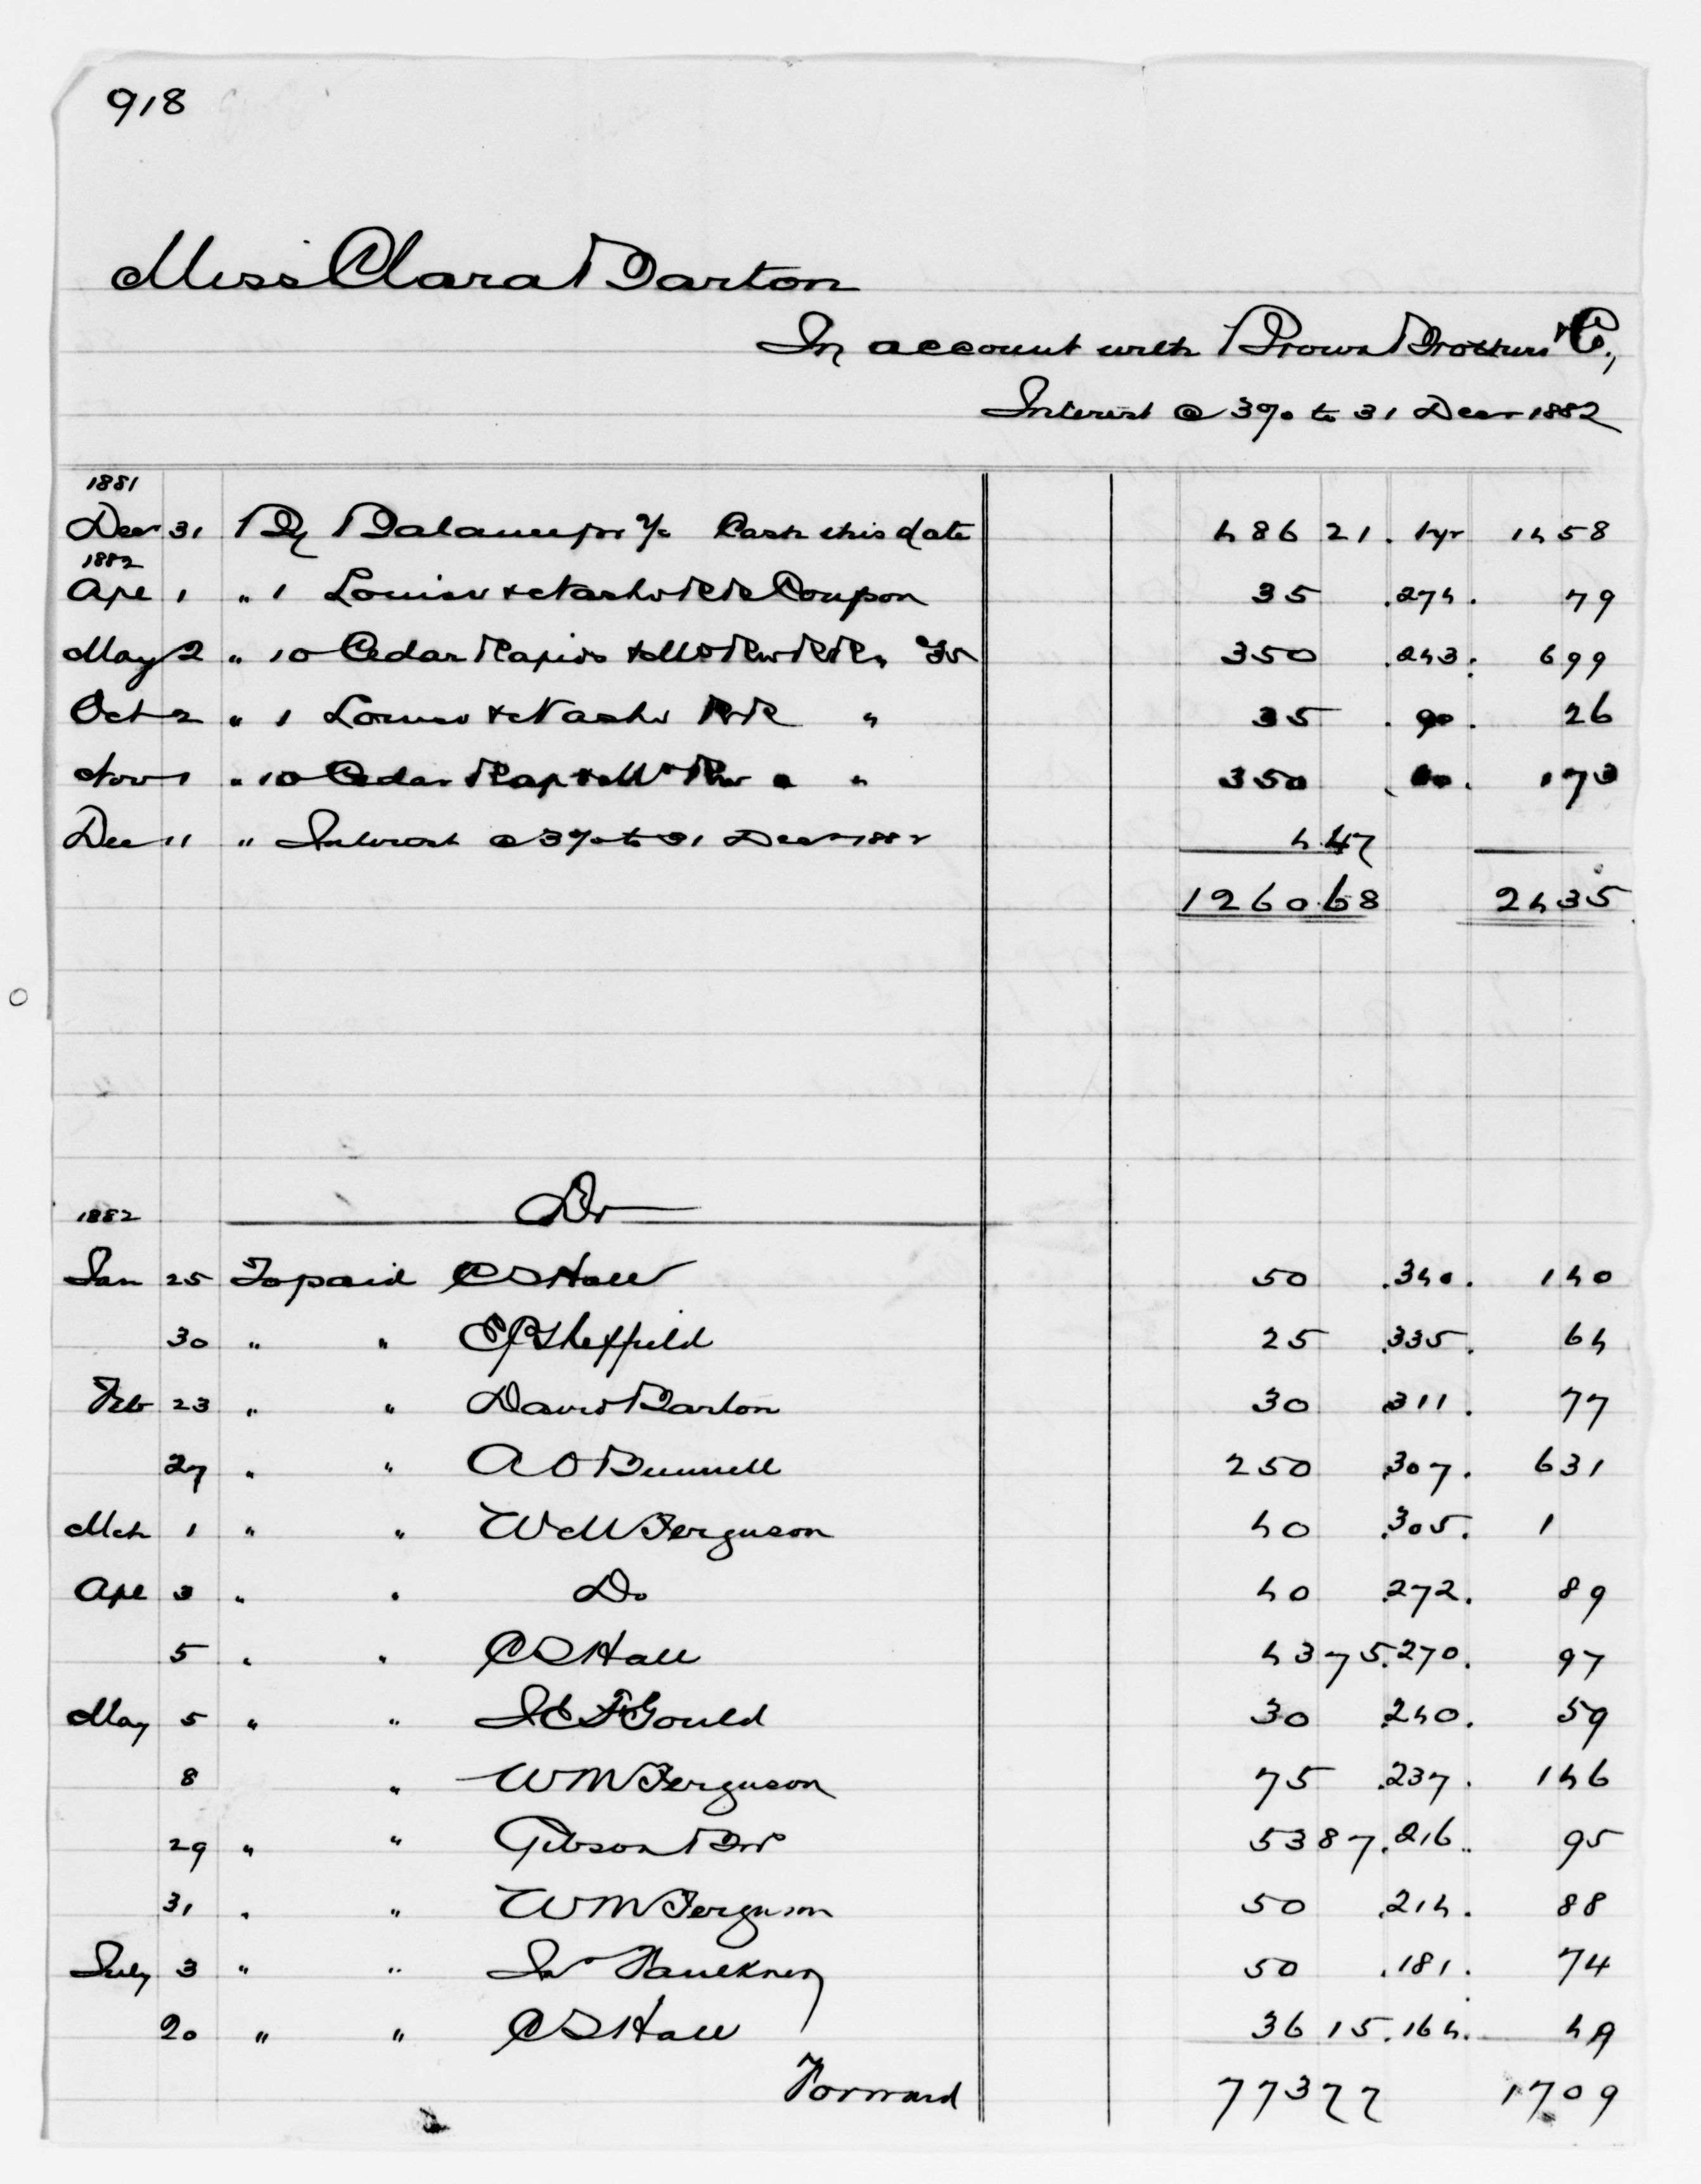 918
Miss Clara Barton
In account with Brown Brothers & Co,
Interest @ 3% to 31 Decr 1882
1881
Decr 31 By Balance pr a/c Cash this date 486 21 . 1yr 14 58
1882
Apl 1 " 1 Louisv & Nashv RR Coupon 35 . 274 . 79
May 2 " 10 Cedar Rapids & Mo Rvr RR " 35 350 . 243 . 6 99
Oct 2 " 1 Louisv & Nashv RR " 35 . 90 . 26
Nov 1 " 10 Cedar Rap & Mo Rvr " " 350 . 60 . 1 73
Dec 11 " Interest @ 3% to 31 Decr 1882 4 47
1260 68 24 35
1882 Dr
Jan 25 To paid C S Hall 50 . 340 . 1 40
30 " " E P Sheffield 25 . 335 . 64
Feb 23 " " David Barton 30 . 311 . 77
27 " " A O Bunnell 250 . 307 . 6 31
Mch 1 " " W M Ferguson 40 . 305 . 1
Apl 3 " " Do 40 . 272 . 89
5 " " C S Hall 43 75 . 270 . 97
May 5 " " J E F Gould 30 . 240 . 59
8 " W M Ferguson 75 . 237 . 1 46
29 " " Gibson Bro 53 87 . 216 . 95
31 " " W M Ferguson 50 . 214 . 88
July 3 " " Jno Faulkner 50 . 181 . 74
20 " " C S Hall 36 15 . 164 . 49
Forward 773 77 17 09